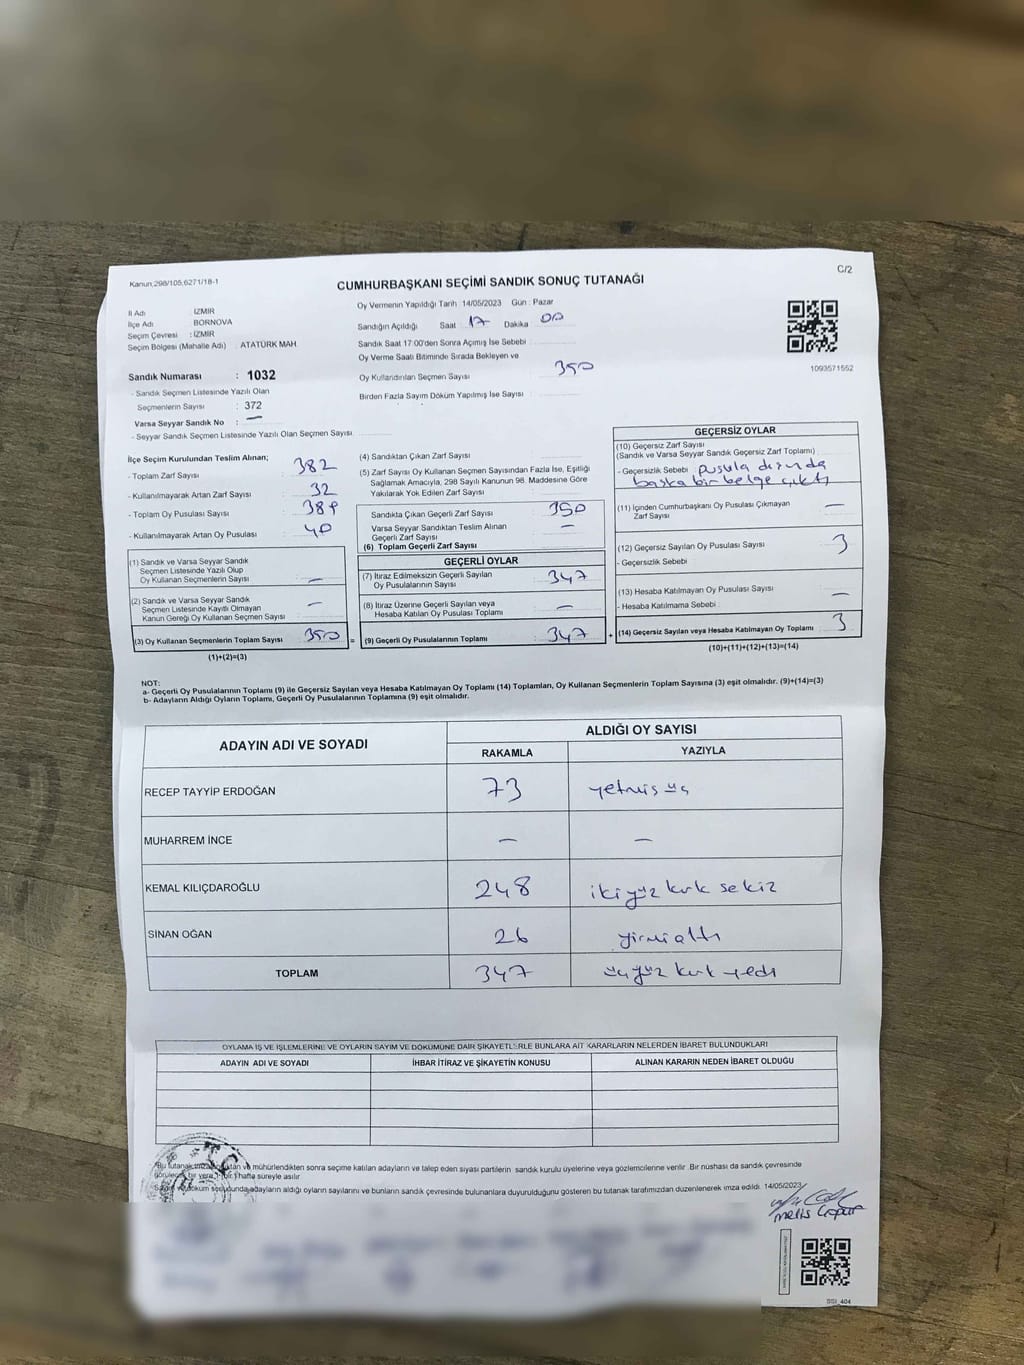 Kanun,298/105,6271/18-1
C/2
CUMHURBAŞKANI SEÇİMİ SANDIK SONUÇ TUTANAĞI
İl Adı : İZMİR
İlçe Adı : BORNOVA
Seçim Çevresi : İZMİR
Seçim Bölgesi (Mahalle Adı) : ATATÜRK MAH
Sandık Numarası : 1032
- Sandık Seçmen Listesinde Yazılı Olan
Seçmenlerin Sayısı : 372
Varsa Seyyar Sandık No : —
- Seyyar Sandık Seçmen Listesinde Yazılı Olan Seçmen Sayısı
Oy Vermenin Yapıldığı Tarih 14/05/2023 Gün : Pazar
Sandığın Açıldığı Saat 17 Dakika 00
Sandık Saat 17:00'den Sonra Açımış İse Sebebi
Oy Verme Saati Bitiminde Sırada Bekleyen ve
Oy Kullandırılan Seçmen Sayısı 350
Birden Fazla Sayım Döküm Yapılmış İse Sayısı :
1093571552
İlçe Seçim Kurulundan Teslim Alınan;
- Toplam Zarf Sayısı : 382
- Kullanılmayarak Artan Zarf Sayısı : 32
- Toplam Oy Pusulası Sayısı :
- Kullanılmayarak Artan Oy Pusulası : 40
(1) Sandık ve Varsa Seyyar Sandık
Seçmen Listesinde Yazılı Olup
Oy Kullanan Seçmenlerin Sayısı : —
(2) Sandık ve Varsa Seyyar Sandık
Seçmen Listesinde Kayıtlı Olmayan
Kanun Gereği Oy Kullanan Seçmen Sayısı : —
(3) Oy Kullanan Seçmenlerin Toplam Sayısı : 350 =
(1)+(2)=(3)
(4) Sandıktan Çıkan Zarf Sayısı
(5) Zarf Sayısı Oy Kullanan Seçmen Sayısından Fazla İse, Eşitliği
Sağlamak Amacıyla, 298 Sayılı Kanunun 98. Maddesine Göre
Yakılarak Yok Edilen Zarf Sayısı :
Sandıkta Çıkan Geçerli Zarf Sayısı : 350
Varsa Seyyar Sandıktan Teslim Alınan
Geçerli Zarf Sayısı : —
(6) Toplam Geçerli Zarf Sayısı :
GEÇERLİ OYLAR
(7) İtiraz Edilmeksizin Geçerli Sayılan
Oy Pusulalarının Sayısı : 347
(8) İtiraz Üzerine Geçerli Sayılan veya
Hesaba Katılan Oy Pusulası Toplamı : —
(9) Geçerli Oy Pusulalarının Toplamı : 347 +
GEÇERSİZ OYLAR
(10) Geçersiz Zarf Sayısı
(Sandık ve Varsa Seyyar Sandık Geçersiz Zarf Toplamı)
- Geçersizlik Sebebi pusula dışında
başka bir belge çıktı
(11) İçinden Cumhurbaşkanı Oy Pusulası Çıkmayan
Zarf Sayısı —
(12) Geçersiz Sayılan Oy Pusulası Sayısı : 3
- Geçersizlik Sebebi :
(13) Hesaba Katılmayan Oy Pusulası Sayısı : —
- Hesaba Katılmama Sebebi :
(14) Geçersiz Sayılan veya Hesaba Katılmayan Oy Toplamı : 3
(10)+(11)+(12)+(13)=(14)
NOT:
a- Geçerli Oy Pusulalarının Toplamı (9) ile Geçersiz Sayılan veya Hesaba Katılmayan Oy Toplamı (14) Toplamları, Oy Kullanan Seçmenlerin Toplam Sayısına (3) eşit olmalıdır. (9)+(14)=(3)
b- Adayların Aldığı Oyların Toplamı, Geçerli Oy Pusulalarının Toplamına (9) eşit olmalıdır.
ADAYIN ADI VE SOYADI
ALDIĞI OY SAYISI
RAKAMLA YAZIYLA
RECEP TAYYİP ERDOĞAN 73 yetmiş üç
MUHARREM İNCE — —
KEMAL KILIÇDAROĞLU 248 ikiyüz kırk sekiz
SİNAN OĞAN 26 yirmi altı
TOPLAM 347 üçyüz kırk yedi
OYLAMA İŞ VE İŞLEMLERİNE VE OYLARIN SAYIM VE DÖKÜMÜNE DAİR ŞİKAYETLERLE BUNLARA AİT KARARLARIN NELERDEN İBARET BULUNDUKLARI
ADAYIN ADI VE SOYADI İHBAR İTİRAZ VE ŞİKAYETİN KONUSU ALINAN KARARIN NEDEN İBARET OLDUĞU
Bu tutanak ve mühürlendikten sonra seçime katılan adayların ve talep eden siyasi partilerin sandık kurulu üyelerine veya gözlemcilerine verilir. Bir nüshası da sandık çevresinde
bir yere (bir) hafta süreyle asılır
döküm sonucunda adayların aldığı oyların sayılarını ve bunların sandık çevresinde bulunanlara duyurulduğunu gösteren bu tutanak tarafımızdan düzenlenerek imza edildi. 14/05/2023
T.C.
melis
SSI_404